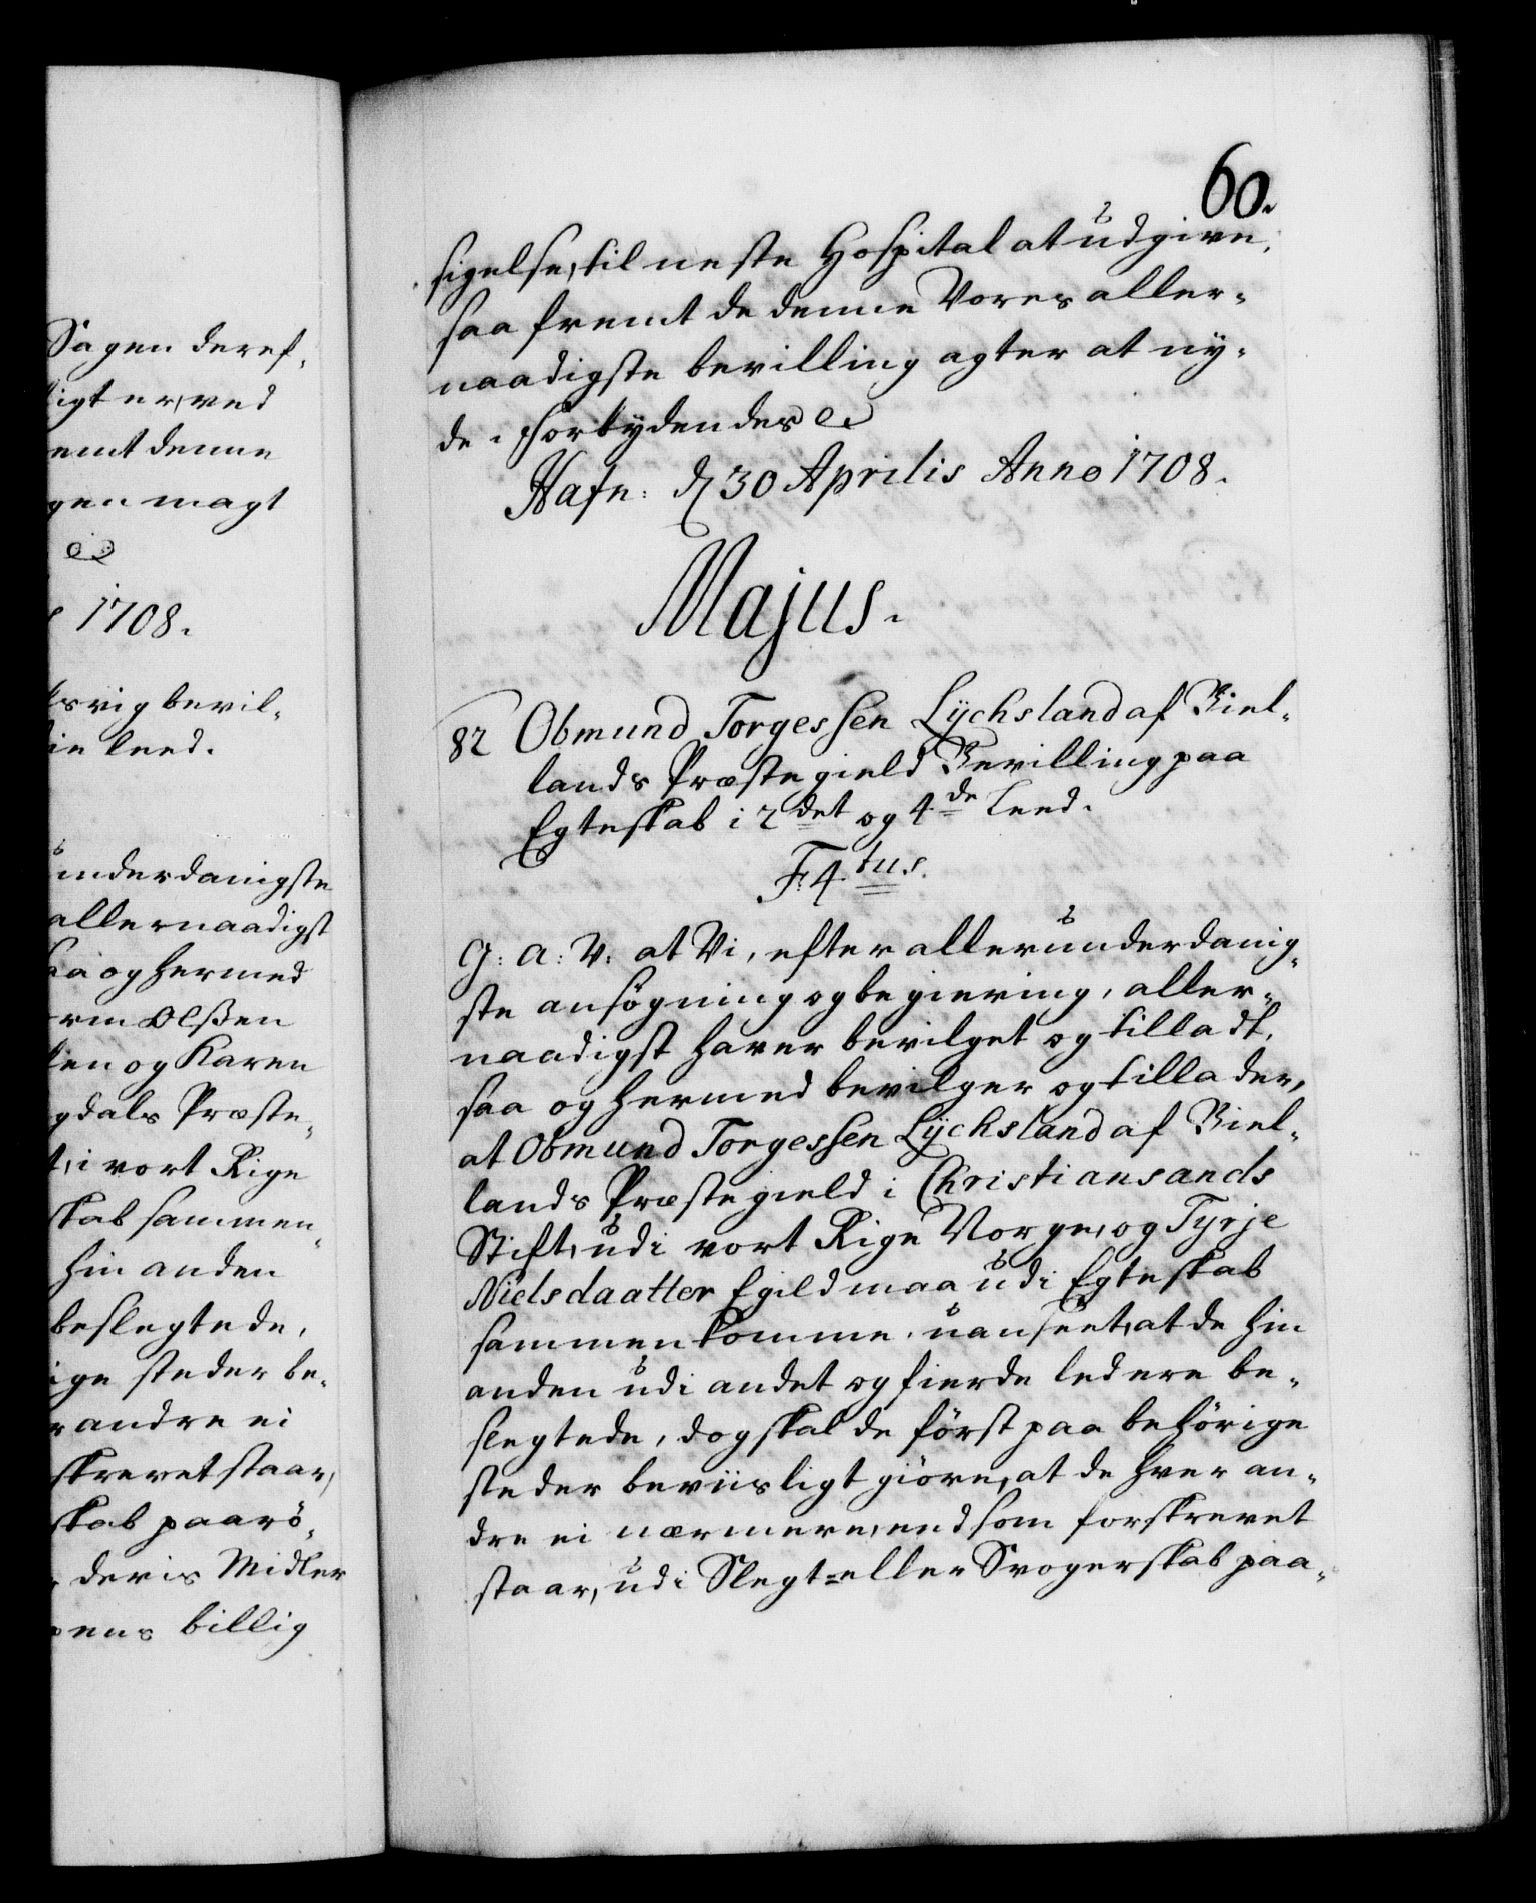 Sagen deref-
igt er, ved
emt denne
gen magt
1708.
svig bevil-
ie leed.
underdanigste
allernaadigst
saa og hermed
Olßen
en og Karen
gdals Præste-
t, i vort Rige
skab sammen-
hin anden
beslegtede,
ige steder be-
andre ei
skrevet staar,
skab paarö-
deris Midler
ens billig
60.
sigelse, til neste Hospital at udgive,
saa fremt de denne Vores aller-
naadigste bevilling agter at ny-
de. Forbydendes &c
Hafn: d 30 Aprilis Anno 1708.
Majus.
82 Obmund Torgessen Lÿchsland af Biel-
lands Præstegield Bevilling paa
Egteskab i 2det og 4de Leed.
F. 4tus.
G: A: V: at Vi, efter allerunderdanig-
ste ansögning og begiering, aller-
naadigst haver bevilget og tilladt,
saa og hermed bevilger og tillader,
at Obmund Torgessen Lÿchsland af Biel-
lands Præstegield i Christiansands
Stift, udi vort Rige Norge, og Tyrje
Nielsdaatter Egild maa udi Egteskab
sammenkomme, uanseet, at de hin
anden udi andet og fierde led ere be-
slegtede, dog skal de först paa behörige
steder beviisligt giöre, at de hver an-
dre ei nærmere, end som forskrevet
staar, udi Slegt- eller Svogerskab paa-